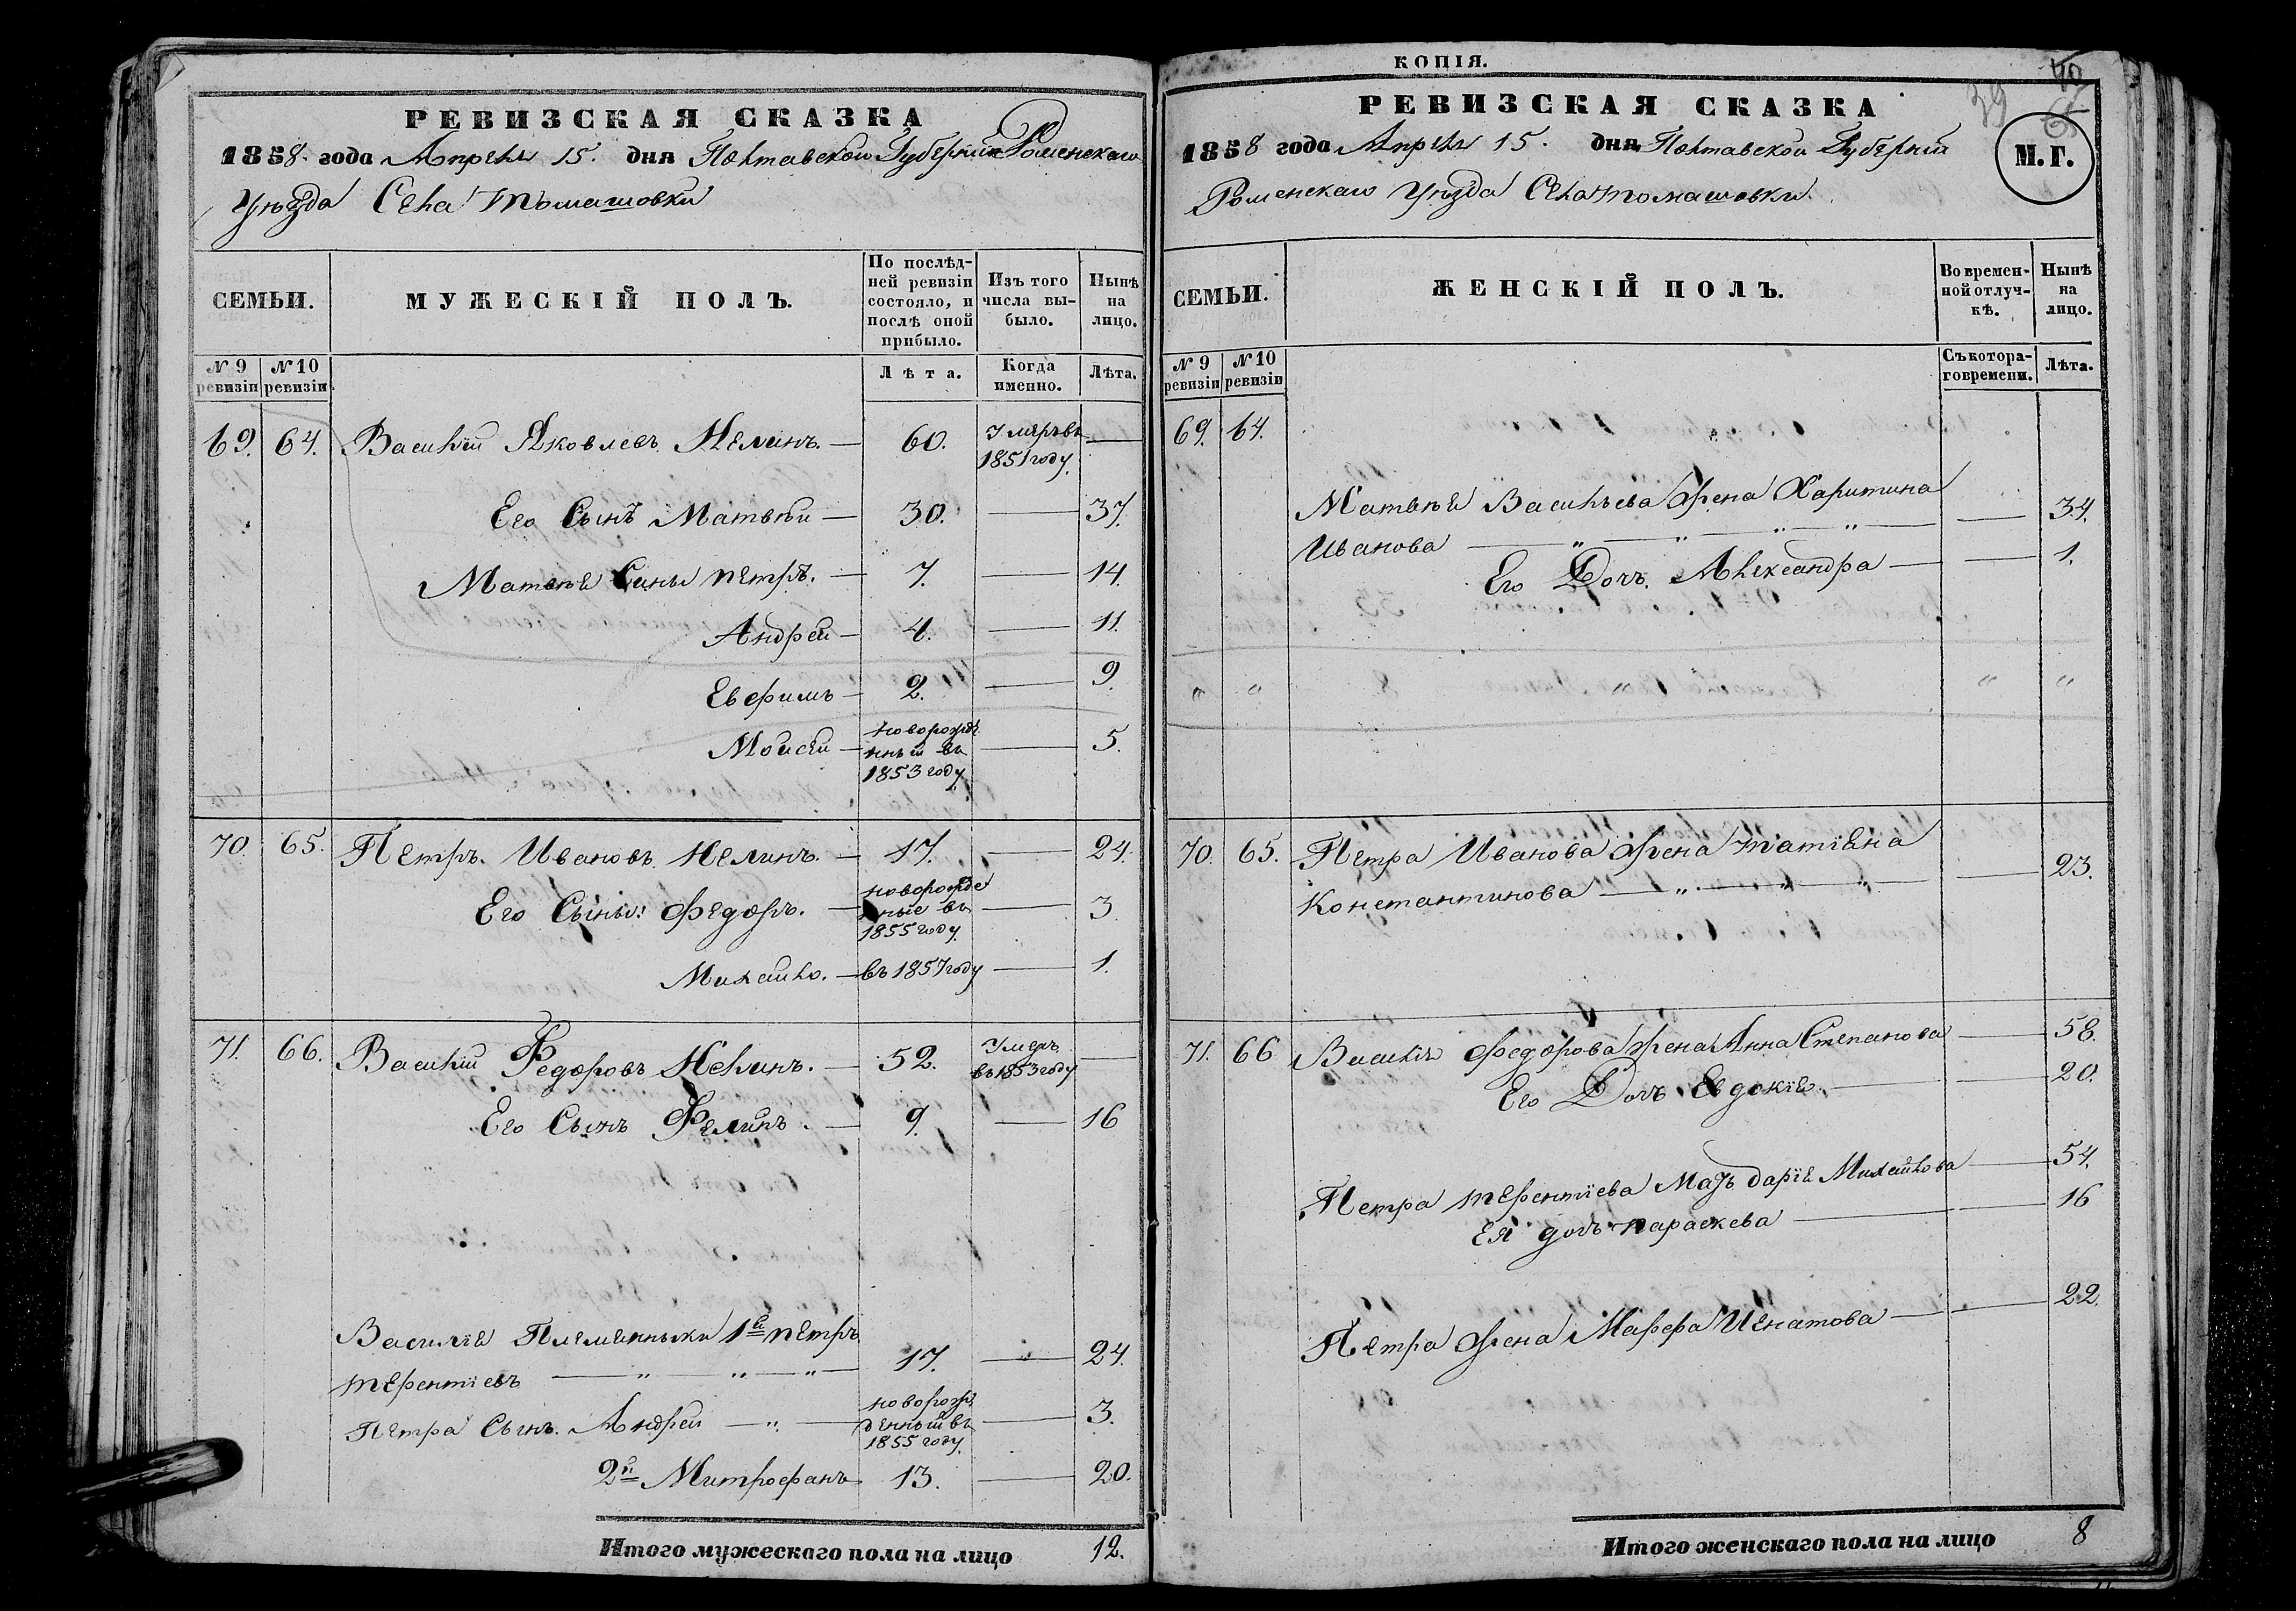 РЕВИЗСКАЯ СКАЗКА
1858. года Апреля 15. дня Полтавской Губернии Роменскаго
Уѣзда Села Томашовки
СЕМЬИ.
МУЖЕСКІЙ ПОЛЪ.
По послѣд-
ней ревизіи
состояло, и
послѣ оной
прибыло.
Изъ того
числа вы-
было.
Нынѣ
на
лицо.
№ 9
ревизіи
№ 10
ревизіи
Лѣта.
Когда
именно.
Лѣта.
69. 64. Василий Яковлевъ Нелинъ. — 60. Умеръ въ 1851 году —
Его Сынъ Матвѣй — 30. — 37.
Матвѣя Сыны Петръ. — 7. — 14.
Андрей — 4. — 11.
Евфимъ — 2. — 9.
Моисей — новорожденный въ 1853 году — 5.
70. 65. Петръ Ивановъ Нелинъ. — 17. — 24.
Его Сыны: Федоръ. — новорожденые въ 1855 году — 3
Михайло. — въ 1857 году — 1.
71. 66. Василий Федоровъ Нелинъ. — 52. Умеръ въ 1853 году —
Его Сынъ — 9. — 16
Василіе Племенники 1й Петръ
Терентіевъ — " — " — " — 17. — 24.
Петра Сынъ. Андрей — " — новорожденный въ 1855 году — 3.
2й Митрофанъ 13. — 20.
Итого мужескаго пола на лицо 12.
КОПІЯ.
39
РЕВИЗСКАЯ СКАЗКА
1858 года Апреля 15. дня Полтавской Губерніи
М. Г.
Роменскаго Уѣзда Села Томашовки.
СЕМЬИ.
ЖЕНСКІЙ ПОЛЪ.
Во времен-
ной отлуч-
кѣ.
Нынѣ
на
лицо.
№ 9
ревизіи
№ 10
ревизіи
Съ котора-
го времени.
Лѣта.
69. 64.
Матвѣя Васильева Жена Харитина
Иванова — " — " — " — " — 34.
Его Дочь Александра — 1.
" " " " "
70. 65. Петра Иванова Жена Татіяна
Константинова — " — " — " — 23.
71. 66 Василія Федорова Жена Анна Степанова — 58.
Его Дочь Евдокіе. — 20.
Петра Терентіева Мать Даріе Михайлова — 54.
Ея дочь Параскева — 16
Петра Жена Марфа Игнатова — 22.
Итого женскаго пола на лицо 8